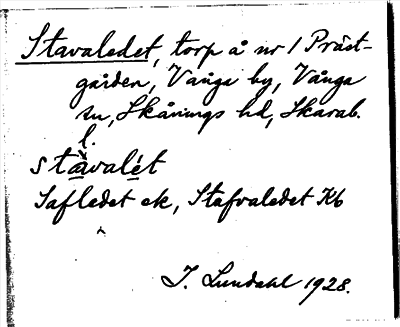 Stavaledet, torp å nr 1 Präst-
gården, Vånga by, Vånga
sn, Skånings hd, Skarab.
l.
stavalét
Safledet ek, Stafvaledet Kb
I. Lundahl 1928.